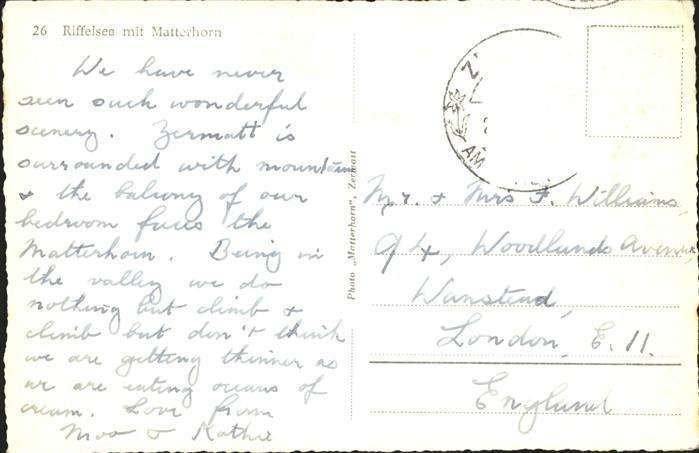 26 Riffelsee mit Matterhorn
We have never
seen such wonderful
scenery. Zermatt is
surrounded with mountains
& the balcony of our
bedroom faces the
Matterhorn. Being in
the valley we do
nothing but climb &
climb but don't think
we are getting thinner as
we are eating oceans of
cream. Love from
Moo & Kathie
Photo „Matterhorn", Zermatt
Z
AM
Mr. & Mrs F. Williams,
94, Woodlands Avenue,
Wanstead,
London, E. 11.
England